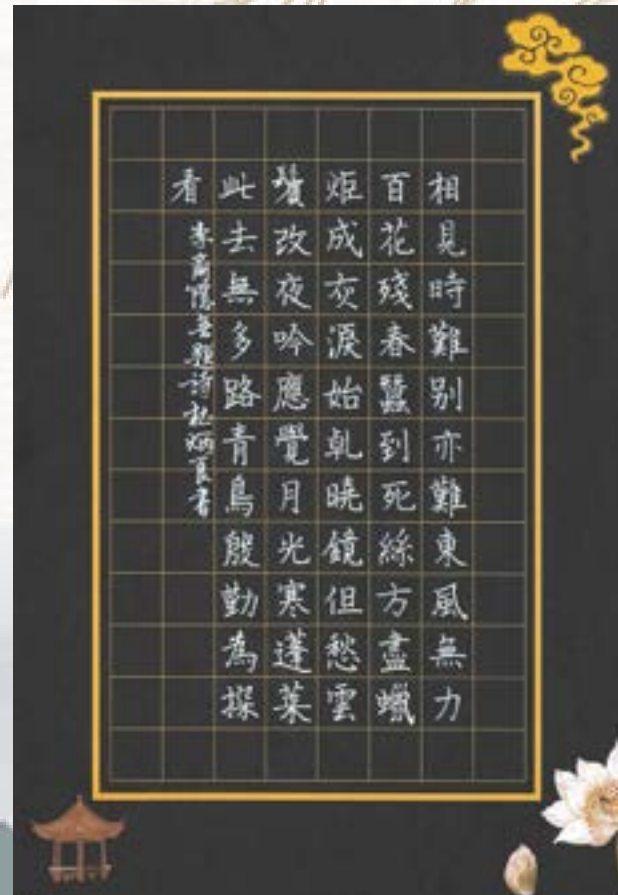 相見時難别亦難東風無力
百花殘春蠶到死絲方盡蠟
炬成灰淚始乾曉鏡但愁雲
鬢改夜吟應覺月光寒蓬萊
此去無多路青鳥殷勤為探
看
李商隱無題詩 炳良書